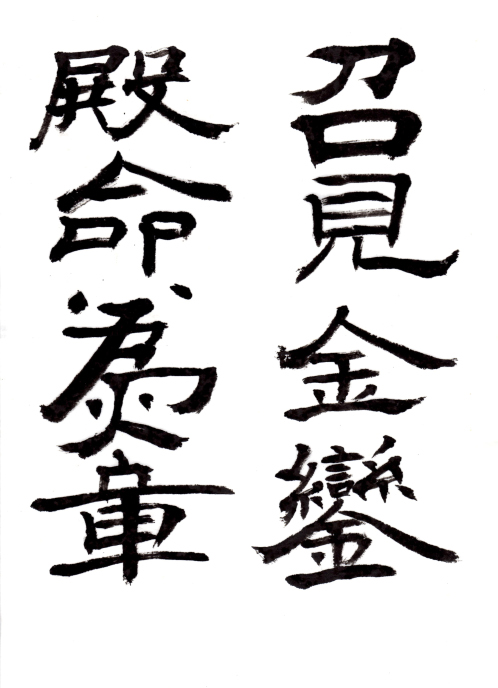 召見金鑾
殿命為章